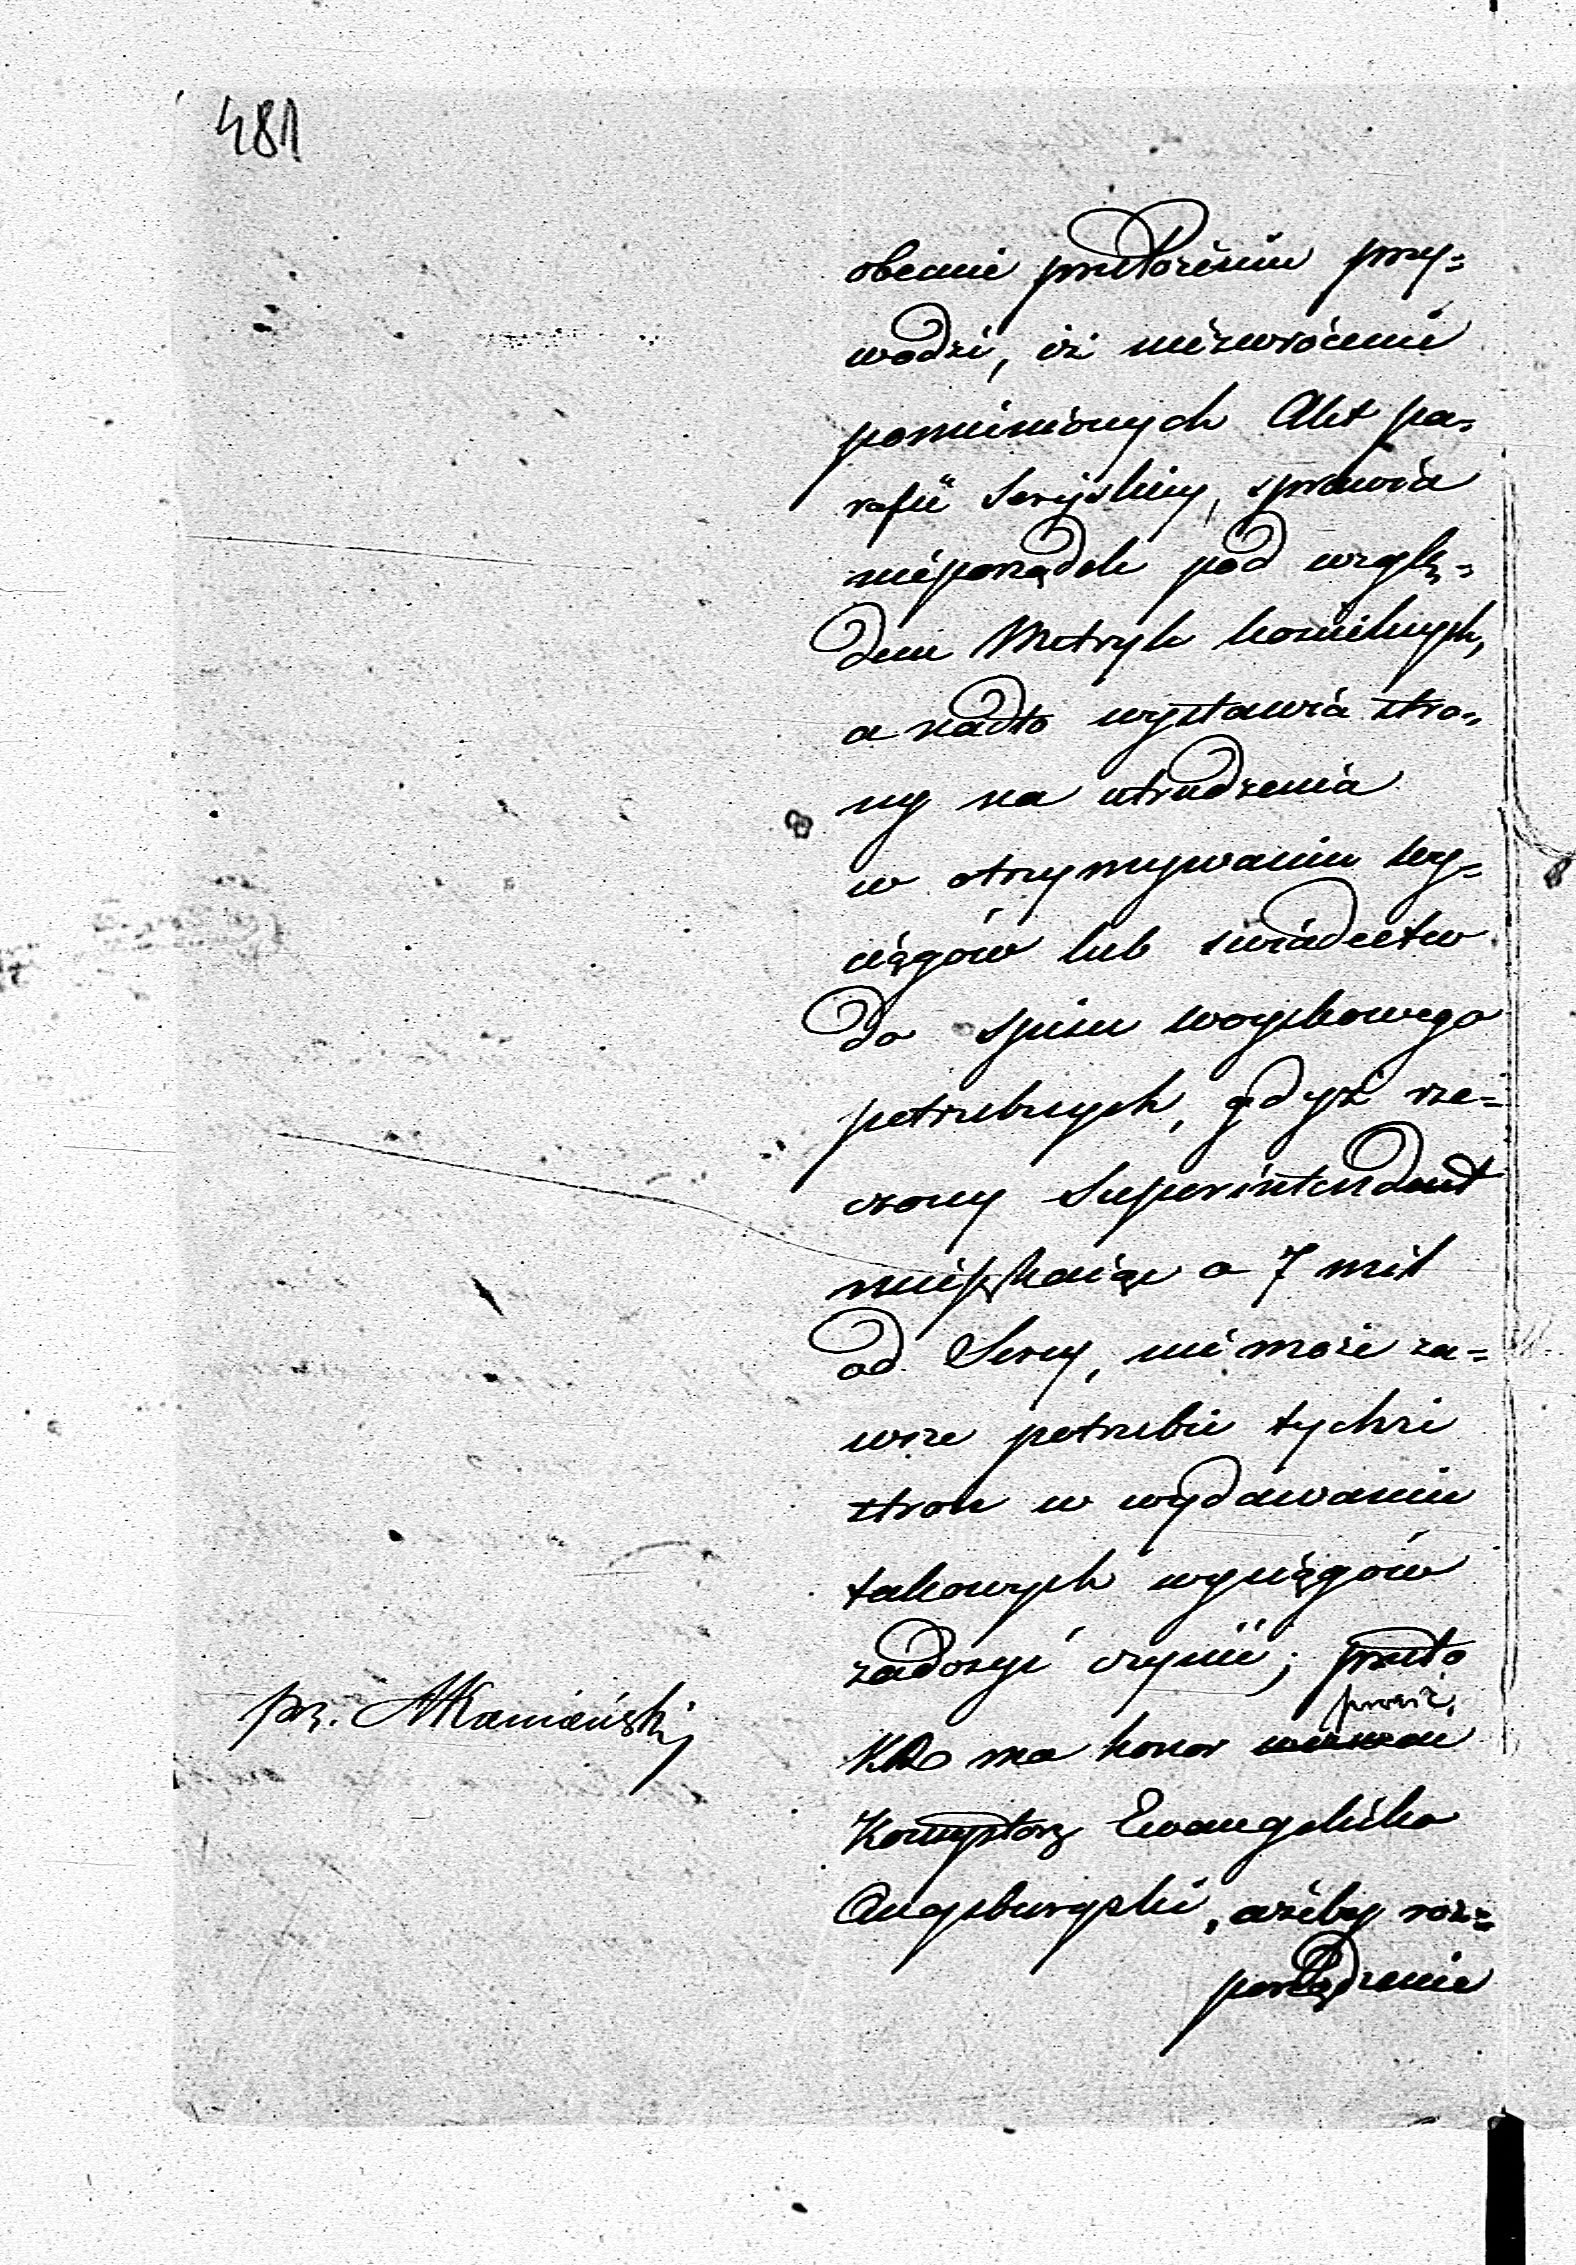 481
obecnie przełożeniu przy=
wodzi, iż niezwrócenie
pomienionych Akt pa=
rafii Seryiskiey, sprawia
nieporządek pod wzglę=
dem Metryk kościelnych,
a nadto wystawia stro=
ny na utrudzenia
w otrzymywaniu wy=
ciągów lub świadectw
do spisu woyskowego
potrzebnych, gdyż rze=
czony Superintendent
mieszkaiąc o 7 mil
od Serey, nie może za=
wsze potrzebie tychże
stron w wydawaniu
takowych wyciągów
zadosyć czynić; przeto
prosić
KR ma honor wezwać
Konsystorz Ewangelicko
Augsburgski, ażeby roz=
porządzenie
prz. AKamiński